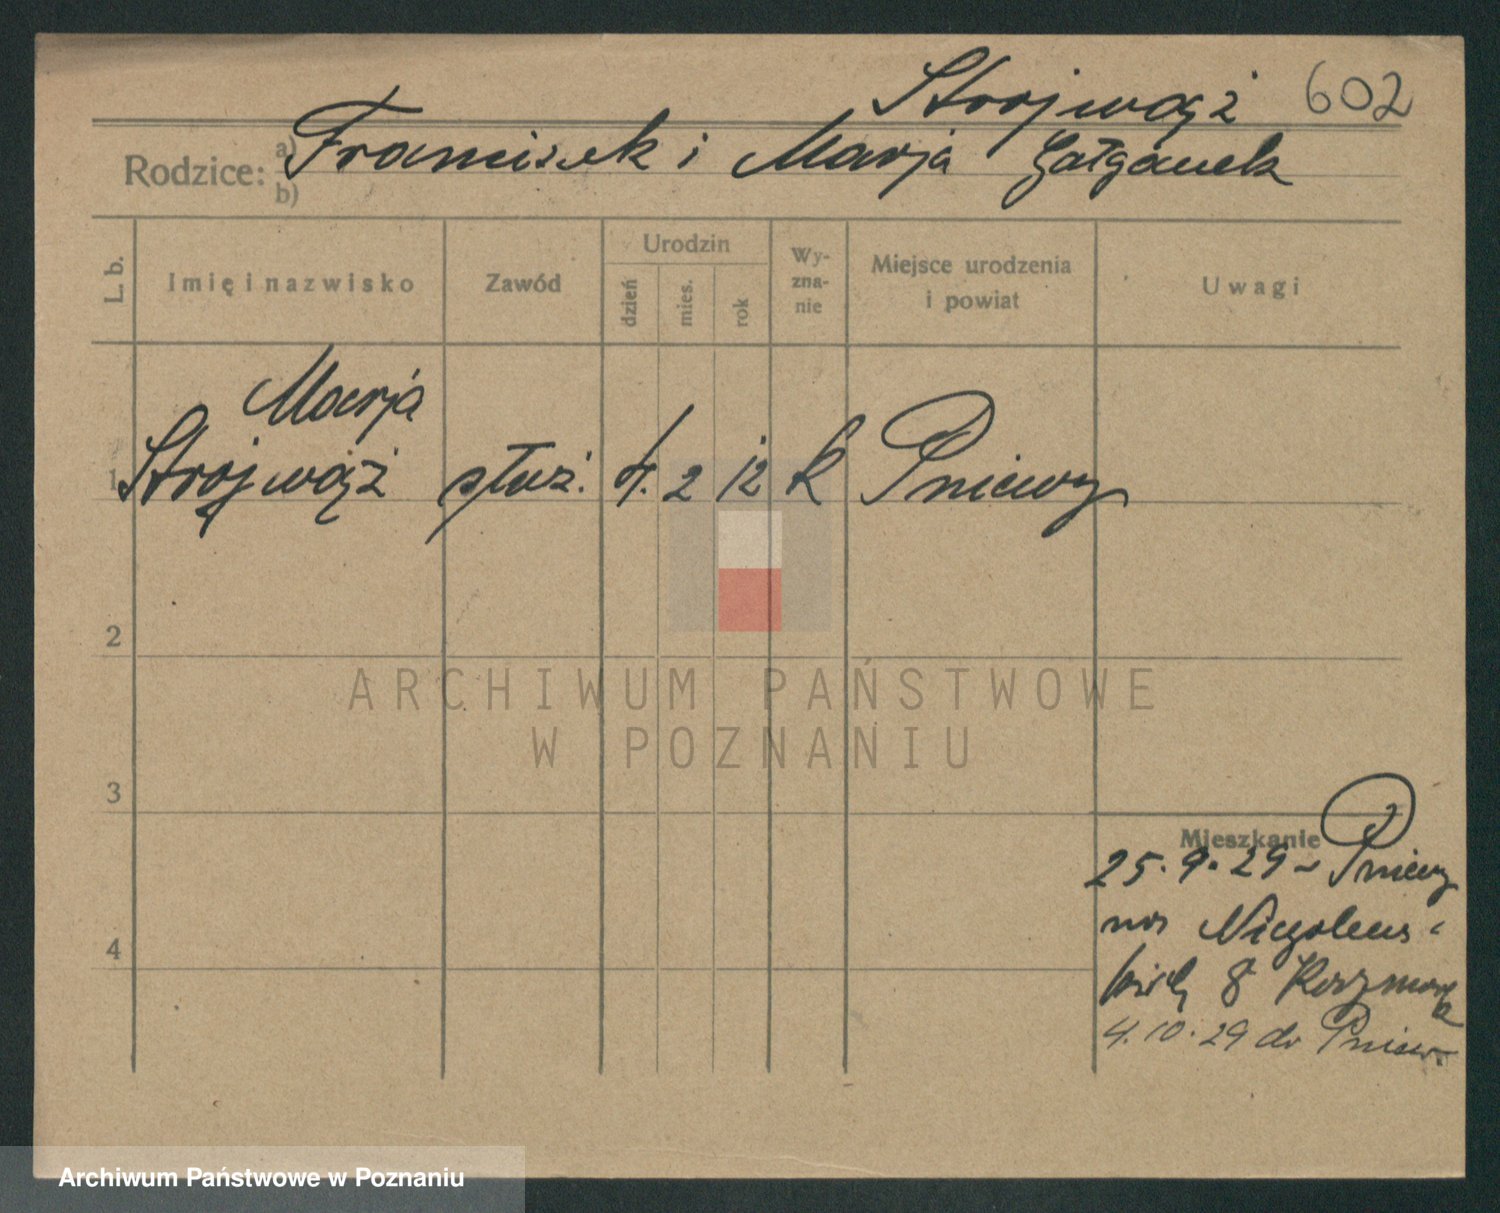 Strojwąż 602
Rodzice: a) Franciszek i Marja Gałganek
b)
L. b. Imię i nazwisko Zawód Urodzin dzień mies. rok Wy-zna-nie Miejsce urodzenia i powiat Uwagi
Marja
1 Strojwąż służ. 4. 2 12 k Pniewy
2
ARCHIWUM PAŃSTWOWE
W POZNANIU
3
Mieszkanie
25.9.29 - Pniewy
4
8
4.10.29 do Pniew
Archiwum Państwowe w Poznaniu